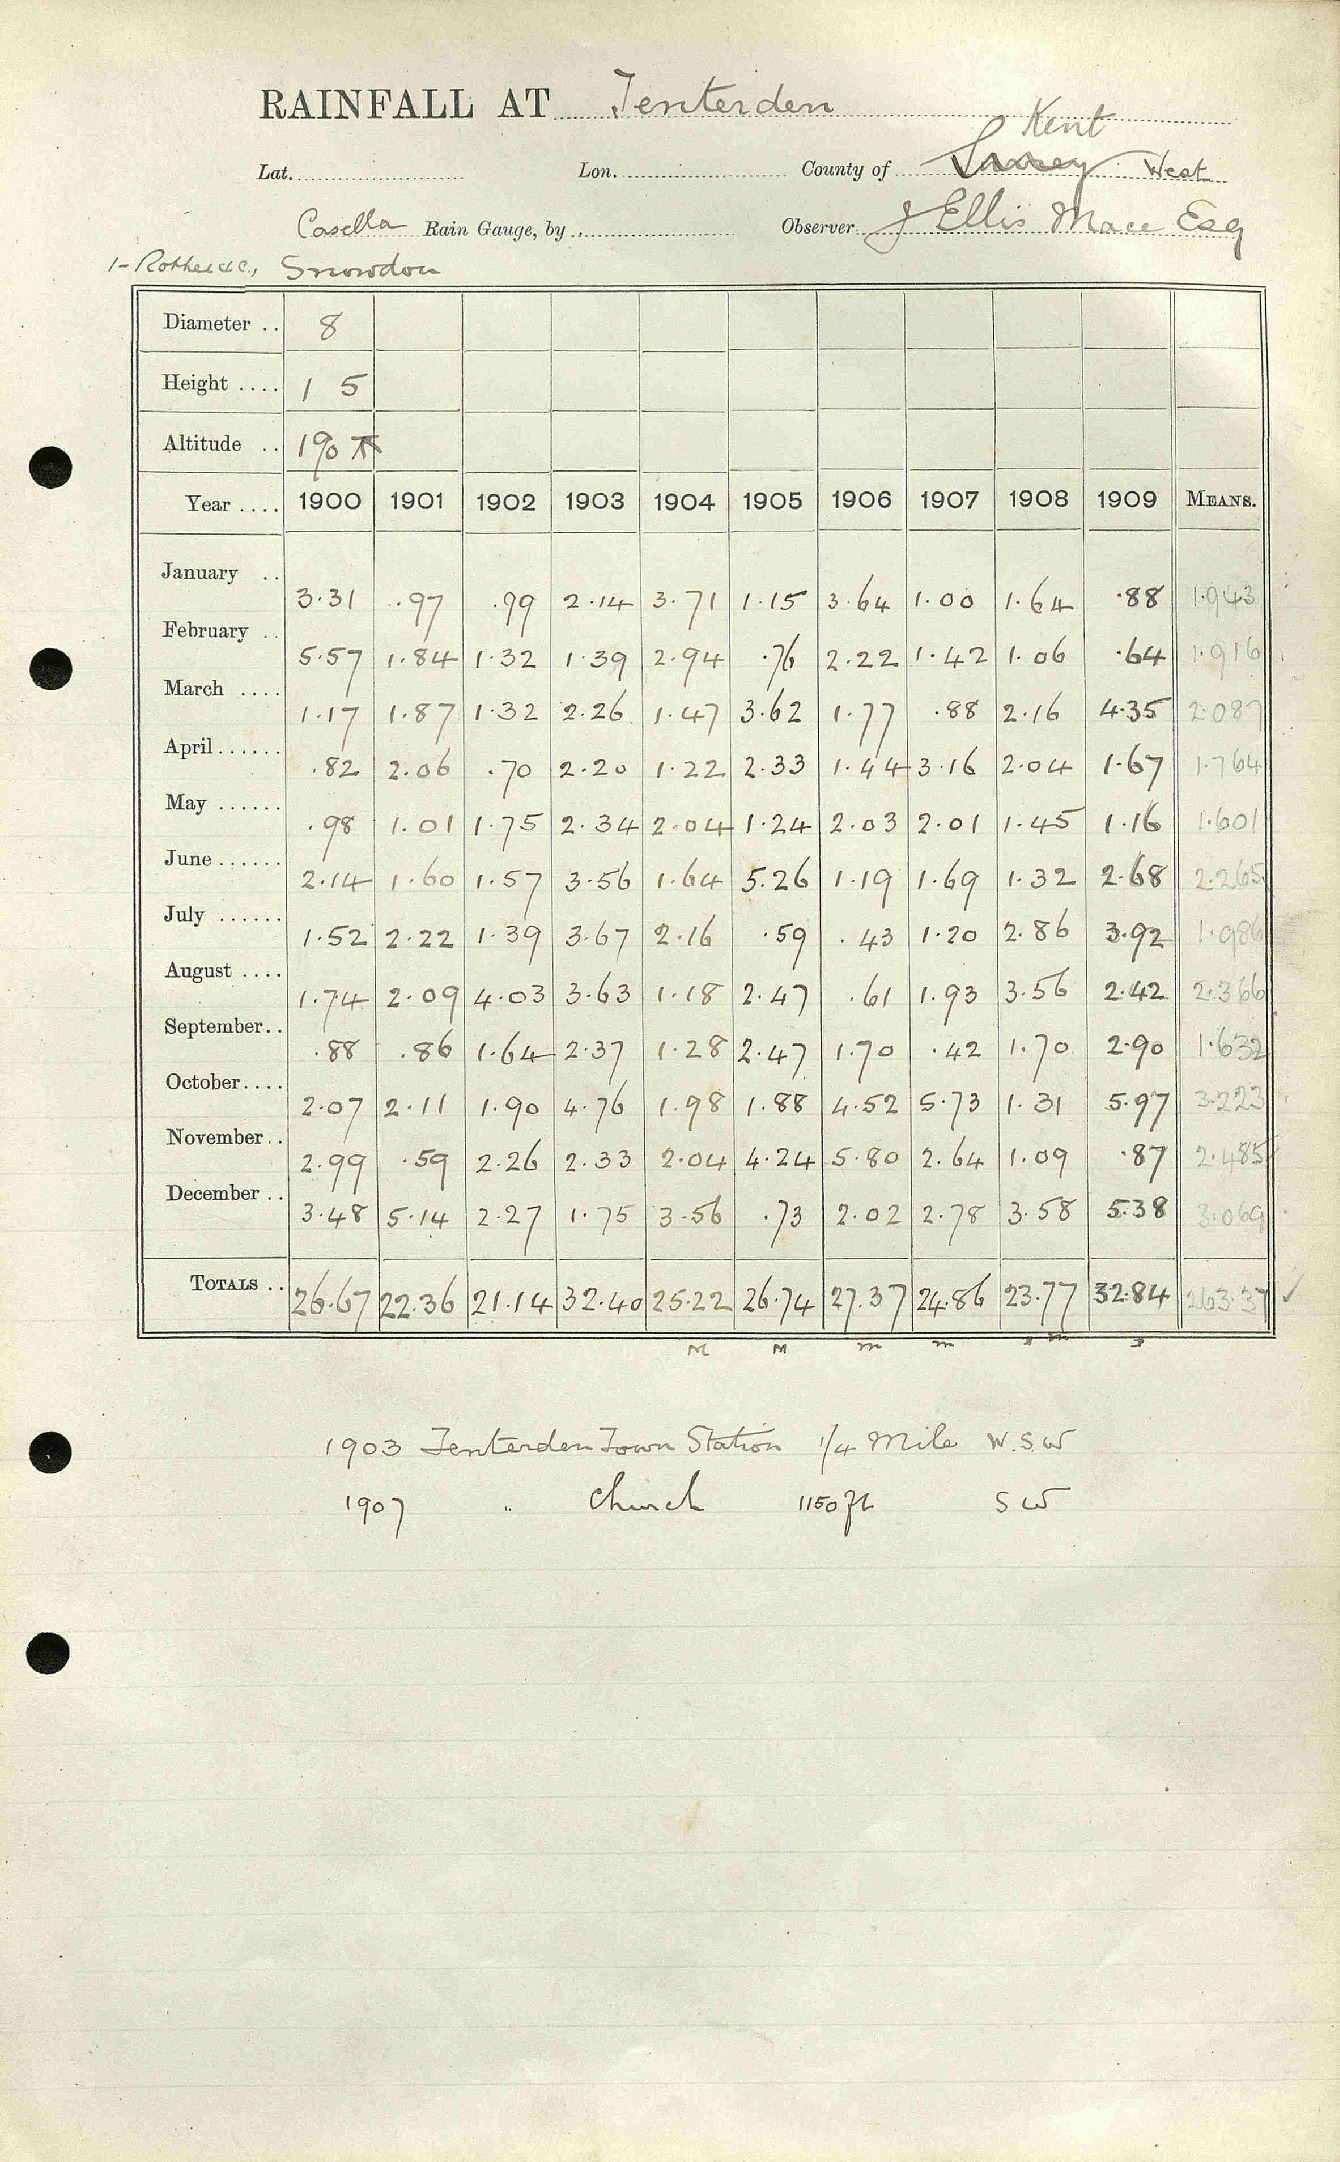 RAINFALL AT Tenterden
Kent
Lat. Lon. County of Surrey West
Casella Rain Gauge, by Observer J Ellis Mace Esq
Snowdon
Diameter .. 8
Height .... 1 5
Altitude .. 190
Year .... 1900 1901 1902 1903 1904 1905 1906 1907 1908 1909 MEANS.
January .. 3.31 .97 .99 2.14 3.71 1.15 3.64 1.00 1.64 .88 1.943
February .. 5.57 1.84 1.32 1.39 2.94 .76 2.22 1.42 1.06 .64 1.916
March .... 1.17 1.87 1.32 2.26 1.47 3.62 1.77 .88 2.16 4.35 2.087
April ...... .82 2.06 .70 2.20 1.22 2.33 1.44 3.16 2.04 1.67 1.764
May ...... .98 1.01 1.75 2.34 2.04 1.24 2.03 2.01 1.45 1.16 1.601
June ...... 2.14 1.60 1.57 3.56 1.64 5.26 1.19 1.69 1.32 2.68 2.265
July ...... 1.52 2.22 1.39 3.67 2.16 .59 .43 1.20 2.86 3.92 1.986
August .... 1.74 2.09 4.03 3.63 1.18 2.47 .61 1.93 3.56 2.42 2.366
September.. .88 .86 1.64 2.37 1.28 2.47 1.70 .42 1.70 2.90 1.632
October.... 2.07 2.11 1.90 4.76 1.98 1.88 4.52 5.73 1.31 5.97 3.223
November.. 2.99 .59 2.26 2.33 2.04 4.24 5.80 2.64 1.09 .87 2.485
December .. 3.48 5.14 2.27 1.75 3.56 .73 2.02 2.78 3.58 5.38 3.069
TOTALS .. 26.67 22.36 21.14 32.40 25.22 26.74 27.37 24.86 23.77 32.84 263.37
M M m m
1903 Tenterden Town Station 1/4 Mile W.S.W
1907 " Church 1150 ft S W